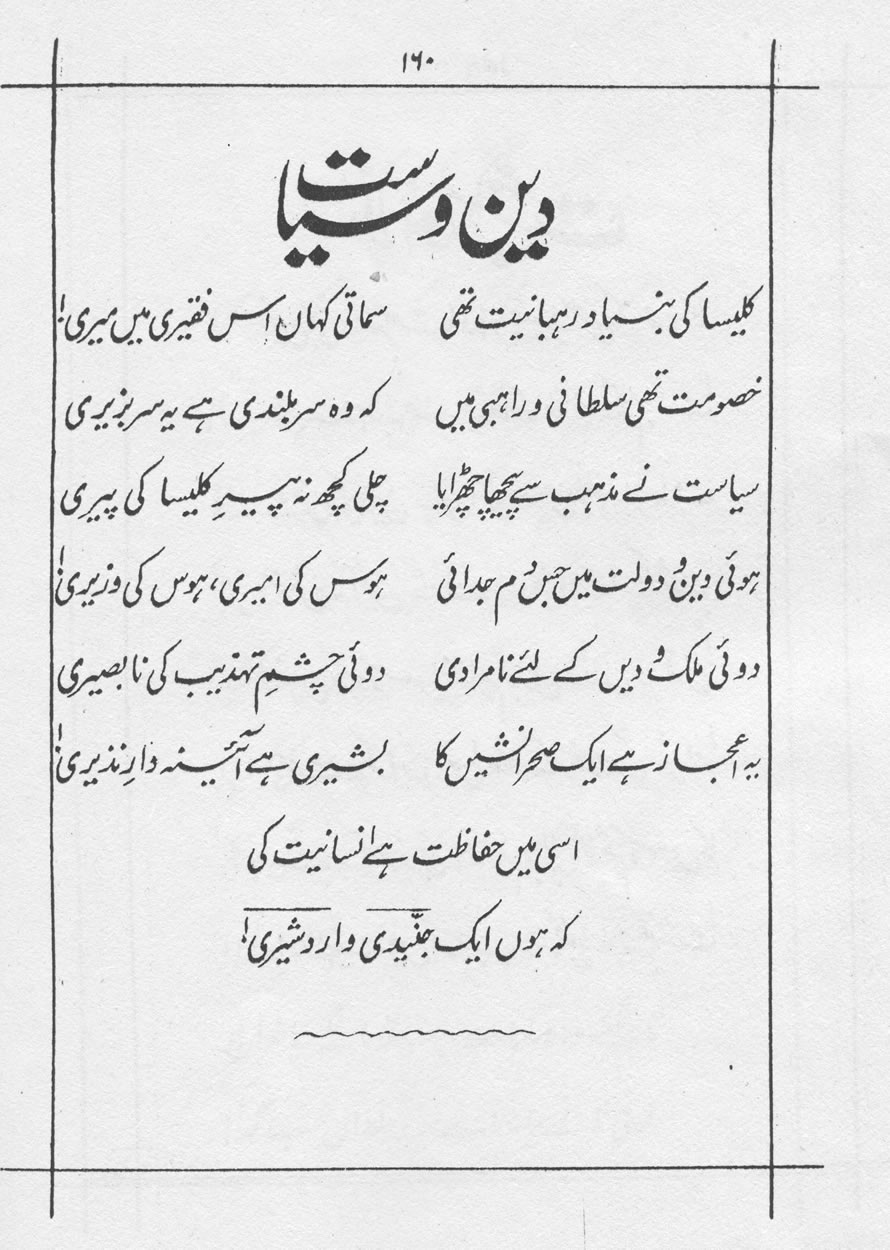 ۱۶۰
دین و سیاست
کلیسا کی بنیاد رہبانیت تھی سماتی کہاں اس فقیری میں میری!
خصومت تھی سلطانی و راہبی میں کہ وہ سربلندی ہے یہ سربزیری
سیاست نے مذہب سے پیچھا چھڑایا چلی کچھ نہ پیرِ کلیسا کی پیری
ہوئی دین و دولت میں جس دم جدائی ہوس کی امیری، ہوس کی وزیری!
دوئی ملک و دیں کے لئے نامرادی دوئی چشمِ تہذیب کی نابصیری
یہ اعجاز ہے ایک صحرا نشیں کا بشیری ہے آئینہ دارِ نذیری!
اسی میں حفاظت ہے انسانیت کی
کہ ہوں ایک جنّیدی و اردشیری!